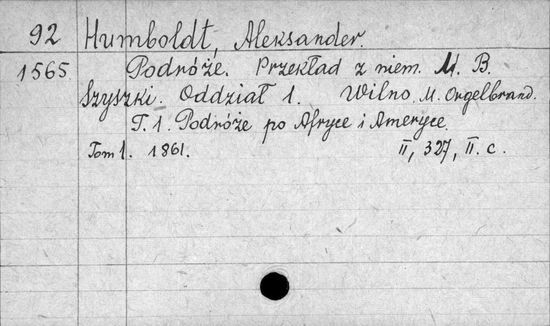 92 Humboldt, Aleksander.
1565 Podróże. Przekład z niem. M. B.
Szyszki. Oddział 1. Wilno. M. Orgelbrand.
T. 1. Podróże po Afryce i Ameryce.
Tom 1. 1861. II, 327, II. c.